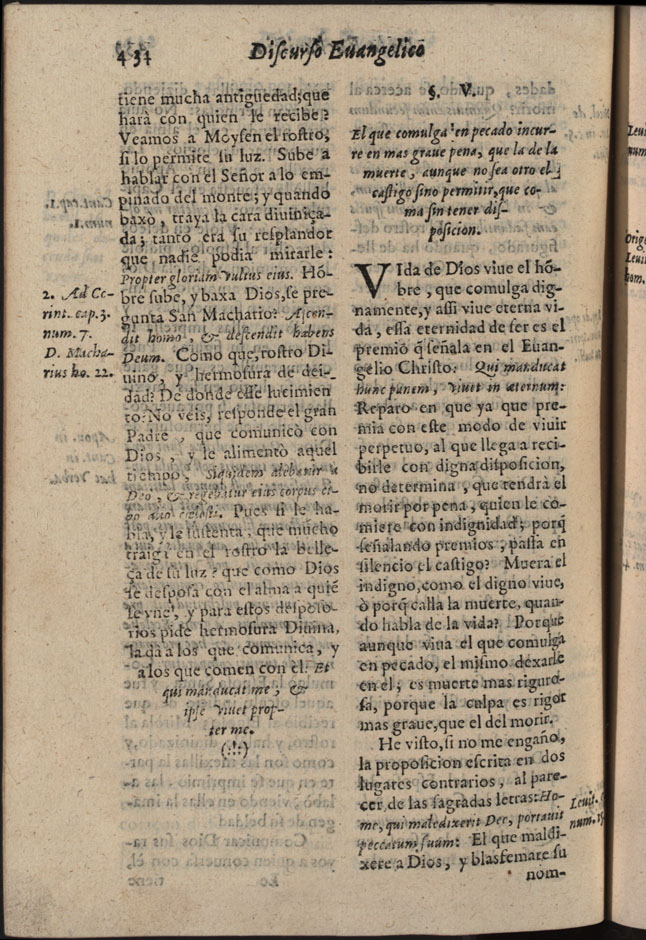 434
Discurso Euangelico
tiene mucha antiguedad; que
harà con quien le recibe?
Veamos a Moysen el rostro,
si lo permite su luz. Sube a
hablar con el Señor a lo em-
pinado del monte; y quando
baxò, traya la cara diuiniça-
da; tanto era su resplandor
que nadie podia mirarle:
Propter gloriam vultus eius. Hõ-
bre sube, y baxa Dios, se pre-
gunta San Machario? Ascen-
dit homo, & descendit habens
Deum. Como que, rostro Di-
uino, y hermosura de dei-
dad? De donde esse lucimien
to? No veis, responde el gran
Padre, que comunicò con
Dios, y le alimentò aquel
tiempo, Siquidem
Deo, & regebatur eius corpus
Pues si le ha-
bla, y le sustenta, que mucho
traiga en el rostro la belle-
ça de su luz? que como Dios
se desposa con el alma a quiẽ
se vne, y para estos desposo-
rios pide hermosura Diuina,
la da a los que comunica, y
a los que comen con èl. Et
qui manducat me, &
ipse viuet prop-
ter me.
(:!:)
2. Ad Co-
rint. cap. 3.
num. 7.
D. Macha-
rius ho. 22.
§. V.
El que comulga en pecado incur-
re en mas graue pena, que la de la
muerte, aunque no sea otro el
castigo sino permitir, que co-
ma sin tener dis-
posicion.
VIda de Dios viue el hõ-
bre, que comulga dig-
namente, y assi viue eterna vi-
da, essa eternidad de ser es el
premio q̃ señala en el Euan-
gelio Christo: Qui manducat
hunc panem, viuet in æternum:
Reparo en que ya que pre-
mia con este modo de viuir
perpetuo, al que llega a reci-
birle con digna disposicion,
no determina, que tendrà el
morir por pena, quien le co-
miere con indignidad; porq̃
señalando premios, passa en
silencio el castigo? Muera el
indigno, como el digno viue,
ò porq̃ calla la muerte, quan-
do habla de la vida? Porque
aunque viua el que comulga
en pecado, el mismo dexarle
en el; es muerte mas riguro-
sa, porque la culpa es rigor
mas graue, que el del morir.
He visto, si no me engaño,
la proposicion escrita en dos
lugares contrarios, al pare-
cer, de las sagradas letras: Ho-
mo, qui maledixerit Deo, portauit
peccatum suum: El que maldi-
xere a Dios, y blasfemare su
nom-
Leuit.
num. 15
Leui
num.
Orige
Leuit
hom.